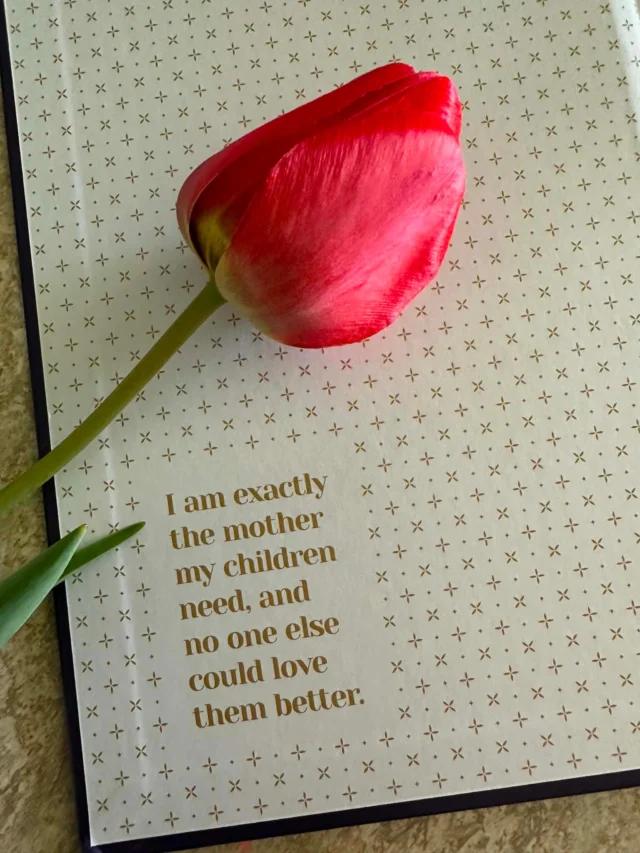 I am exactly
the mother
my children
need, and
no one else
could love
them better.